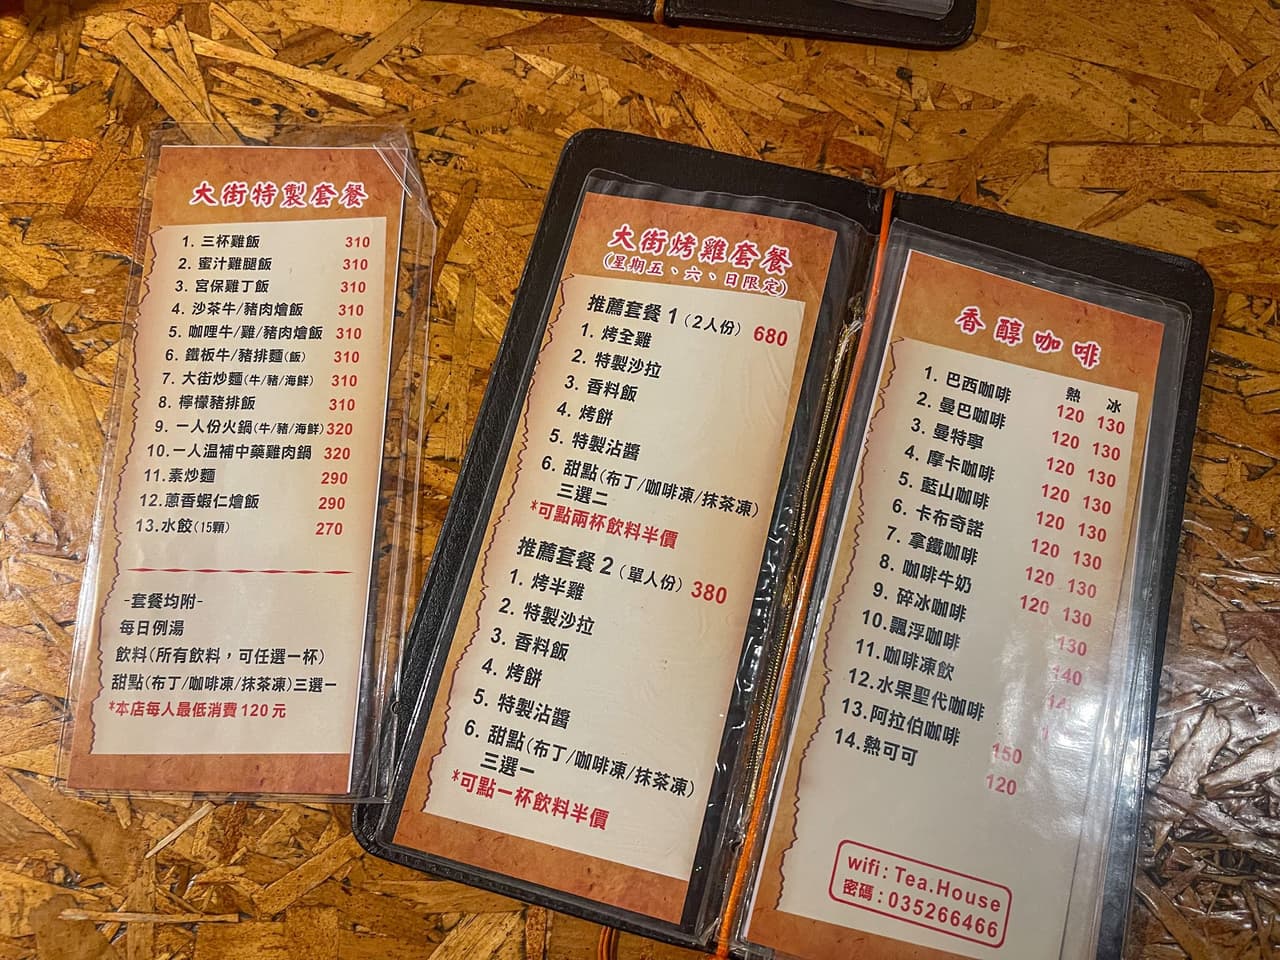 大街特製套餐
1. 三杯雞飯 310
2. 蜜汁雞腿飯 310
3. 宮保雞丁飯 310
4. 沙茶牛/豬肉燴飯 310
5. 咖哩牛/雞/豬肉燴飯 310
6. 鐵板牛/豬排麵(飯) 310
7. 大街炒麵(牛/豬/海鮮) 310
8. 檸檬豬排飯 310
9. 一人份火鍋(牛/豬/海鮮) 320
10.一人温補中藥雞肉鍋 320
11.素炒麵 290
12.蔥香蝦仁燴飯 290
13.水餃(15顆) 270
-套餐均附-
每日例湯
飲料(所有飲料，可任選一杯)
甜點(布丁/咖啡凍/抹茶凍)三選一
*本店每人最低消費120元
大街烤雞套餐
(星期五、六、日限定)
推薦套餐 1 (2人份) 680
1. 烤全雞
2. 特製沙拉
3. 香料飯
4. 烤餅
5. 特製沾醬
6. 甜點(布丁/咖啡凍/抹茶凍)
三選二
*可點兩杯飲料半價
推薦套餐 2 (單人份) 380
1. 烤半雞
2. 特製沙拉
3. 香料飯
4. 烤餅
5. 特製沾醬
6. 甜點(布丁/咖啡凍/抹茶凍)
三選一
*可點一杯飲料半價
香醇咖啡
熱 冰
1. 巴西咖啡 120 130
2. 曼巴咖啡 120 130
3. 曼特寧 120 130
4. 摩卡咖啡 120 130
5. 藍山咖啡 120 130
6. 卡布奇諾 120 130
7. 拿鐵咖啡 120 130
8. 咖啡牛奶 120 130
9. 碎冰咖啡 130
10.飄浮咖啡 140
11.咖啡凍飲
12.水果聖代咖啡
13.阿拉伯咖啡 150
14.熱可可 120
wifi : Tea.House
密碼 : 035266466